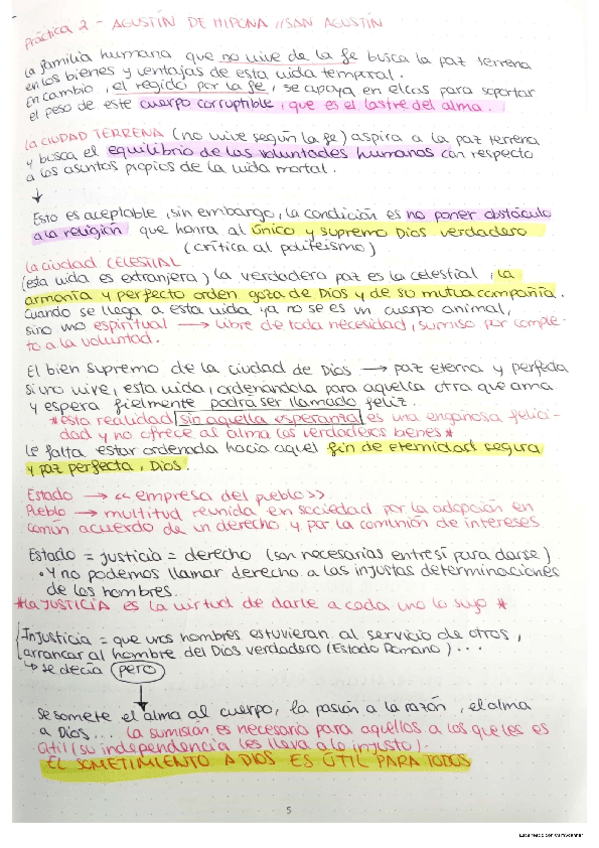 Práctica 2 - AGUSTÍN DE HIPONA // SAN AGUSTÍN
La familia humana que no vive de la fe busca la paz terrena
en los bienes y ventajas de esta vida temporal.
En cambio, el regido por la fe, se apoya en ellas para soportar
el peso de este cuerpo corruptible, que es el lastre del alma.
La CIUDAD TERRENA (no vive según la fe) aspira a la paz terrena
y busca el equilibrio de las voluntades humanas con respecto
a los asuntos propios de la vida mortal.
↓
Esto es aceptable, sin embargo, la condición es no poner obstáculo
a la religión que honra al único y supremo Dios verdadero
(crítica al politeísmo)
La ciudad CELESTIAL
(esta vida es extranjera) la verdadera paz es la celestial, la
armonía y perfecto orden goza de Dios y de su mutua compañía.
Cuando se llega a esta vida ya no se es un cuerpo animal,
sino uno espiritual → libre de toda necesidad, sumiso por comple-
to a la voluntad.
El bien supremo de la ciudad de Dios → paz eterna y perfecta
Si uno vive, esta vida, ordenándola para aquella otra que ama
y espera fielmente podrá ser llamado feliz.
*esta realidad sin aquella esperanza es una engañosa felici-
dad y no ofrece al alma los verdaderos bienes*
Le falta estar ordenada hacia aquel fin de eternidad segura
y paz perfecta, Dios.
Estado → << empresa del pueblo >>
Pueblo → multitud reunida en sociedad por la adopción en
común acuerdo de un derecho y por la comunión de intereses
Estado = justicia = derecho (son necesarias entre sí para darse)
• Y no podemos llamar derecho a las injustas determinaciones
de los hombres.
*La JUSTICIA es la virtud de darle a cada uno lo suyo *
Injusticia = que unos hombres estuvieran al servicio de otros,
arrancar al hombre del Dios verdadero (Estado Romano) ...
↳ se decía pero
↓
Se somete el alma al cuerpo, la pasión a la razón, el alma
a Dios... la sumisión es necesario para aquellos a los que les es
útil (su independencia les lleva a lo injusto).
EL SOMETIMIENTO A DIOS ES ÚTIL PARA TODOS
5